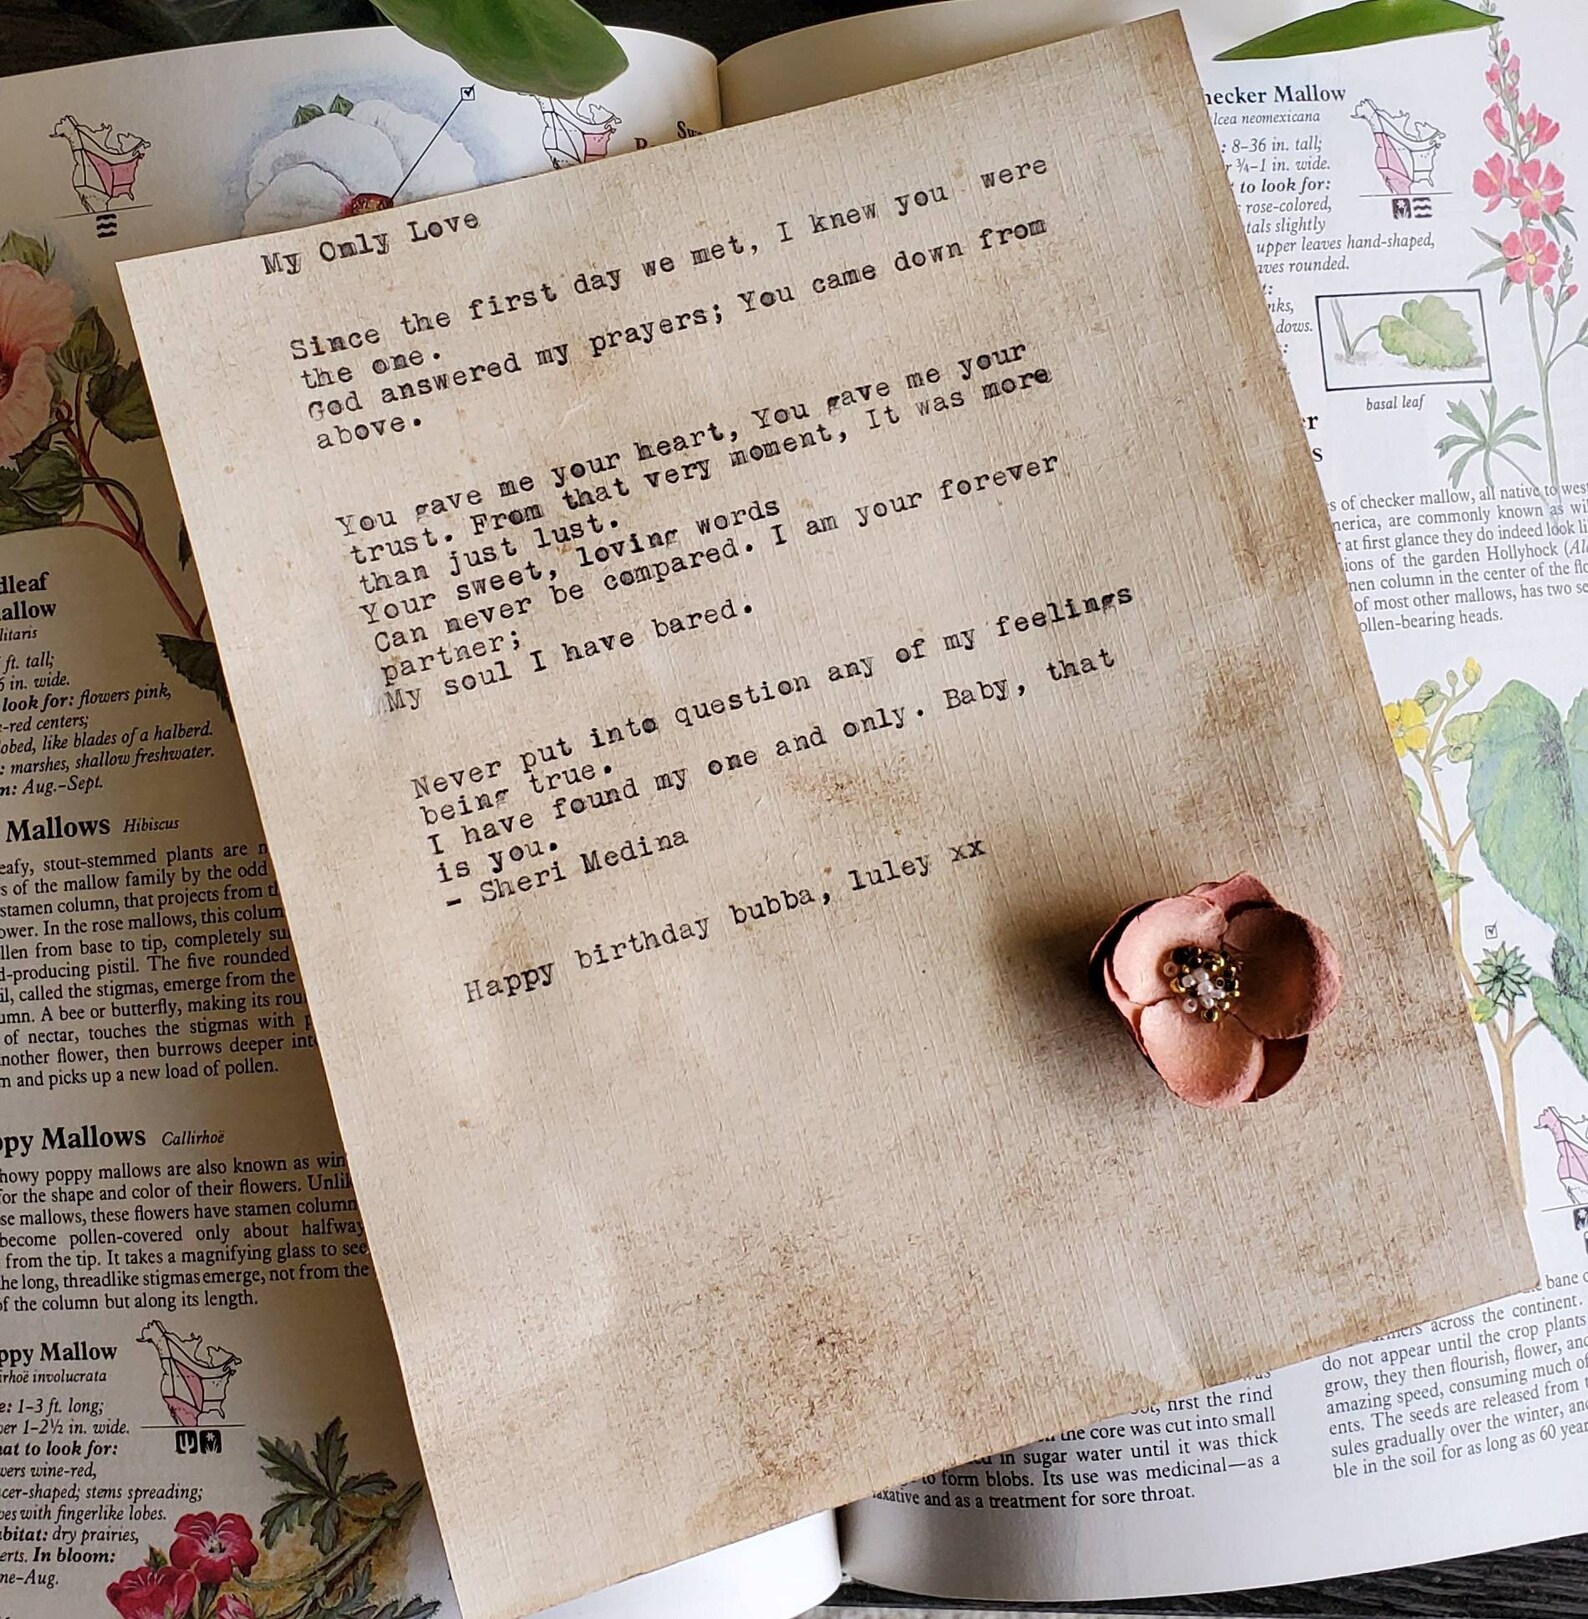 My Only Love
Since the first day we met, I knew you were
the one.
God answered my prayers; You came down from
above.
You gave me your heart, You gave me your
trust. From that very moment, It was more
than just lust.
Your sweet, loving words
Can never be compared. I am your forever
partner;
My soul I have bared.
Never put into question any of my feelings
being true.
I have found my one and only. Baby, that
is you.
- Sheri Medina
Happy birthday bubba, luley xx
dleaf
allow
litaris
ft. tall;
in. wide.
look for: flowers pink,
-red centers;
obed, like blades of a halberd.
: marshes, shallow freshwater.
m: Aug.–Sept.
Mallows Hibiscus
eafy, stout-stemmed plants are
s of the mallow family by the odd
stamen column, that projects from
ower. In the rose mallows, this colum
llen from base to tip, completely su
d-producing pistil. The five rounded
il, called the stigmas, emerge from the
umn. A bee or butterfly, making its rou
of nectar, touches the stigmas with
nother flower, then burrows deeper int
m and picks up a new load of pollen.
ppy Mallows Callirhoë
howy poppy mallows are also known as win
for the shape and color of their flowers. Unlik
se mallows, these flowers have stamen column
become pollen-covered only about halfway
from the tip. It takes a magnifying glass to see
he long, threadlike stigmas emerge, not from the
of the column but along its length.
ppy Mallow
irhoë involucrata
e: 1–3 ft. long;
er 1–2½ in. wide.
hat to look for:
wers wine-red,
cer-shaped; stems spreading;
es with fingerlike lobes.
abitat: dry prairies,
erts. In bloom:
ne–Aug.
hecker Mallow
lcea neomexicana
: 8–36 in. tall;
r ¾–1 in. wide.
to look for:
rose-colored,
tals slightly
upper leaves hand-shaped,
aves rounded.
nks,
dows.
basal leaf
s of checker mallow, all native to west
merica, are commonly known as wi
at first glance they do indeed look li
ions of the garden Hollyhock (Al
men column in the center of the flo
of most other mallows, has two se
ollen-bearing heads.
bane
across the continent.
do not appear until the crop plants
grow, they then flourish, flower, and
amazing speed, consuming much of
ents. The seeds are released from
sules gradually over the winter, and
ble in the soil for as long as 60 year
first the rind
the core was cut into small
in sugar water until it was thick
to form blobs. Its use was medicinal—as a
laxative and as a treatment for sore throat.